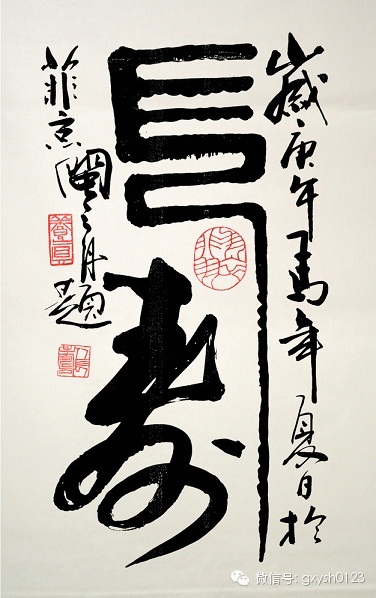 歲庚午馬年夏日於
長寿
菲京閩之題
微信号: gxysh0123